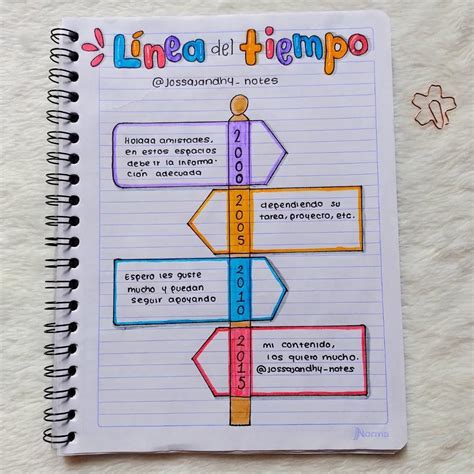 Línea del tiempo
@jossajandhy_notes
2000
Holaaa amistades,
en estos espacios
debe ir la informa-
ción adecuada
2005
dependiendo su
tarea, proyecto, etc.
2010
Espero les guste
mucho y puedan
seguir apoyando
2015
mi contenido,
los quiero mucho.
@jossajandhy_notes
Norma